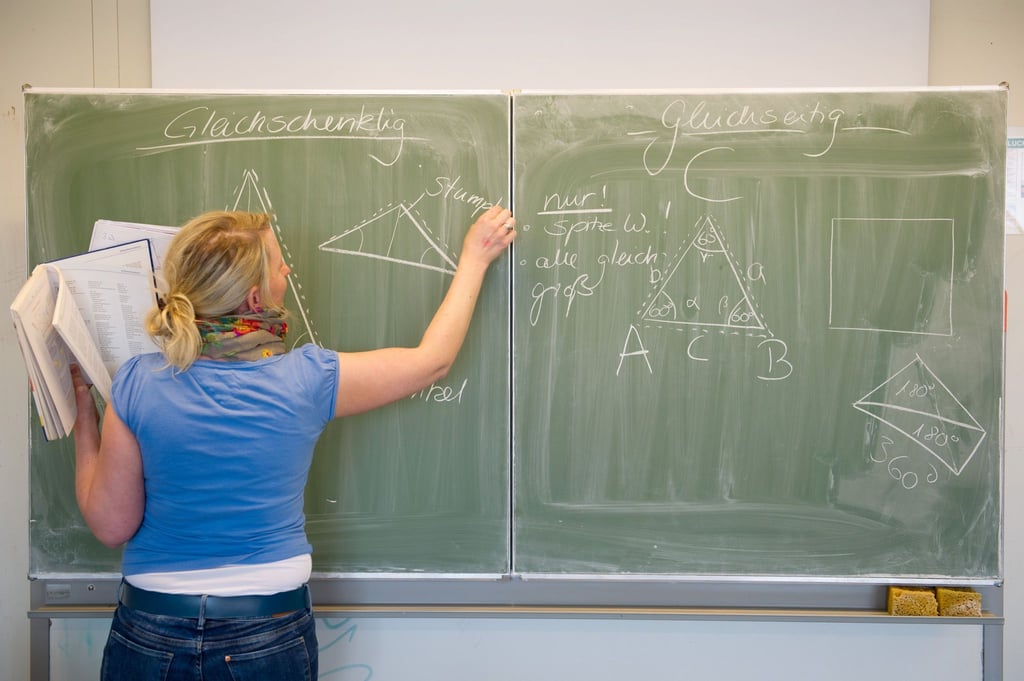 Gleichschenklig
Gleichseitig
C
nur!
• spitze W.!
• alle gleich
groß
60°
γ
b
a
60°
α
β
60°
A
C
B
180°
180°
360°